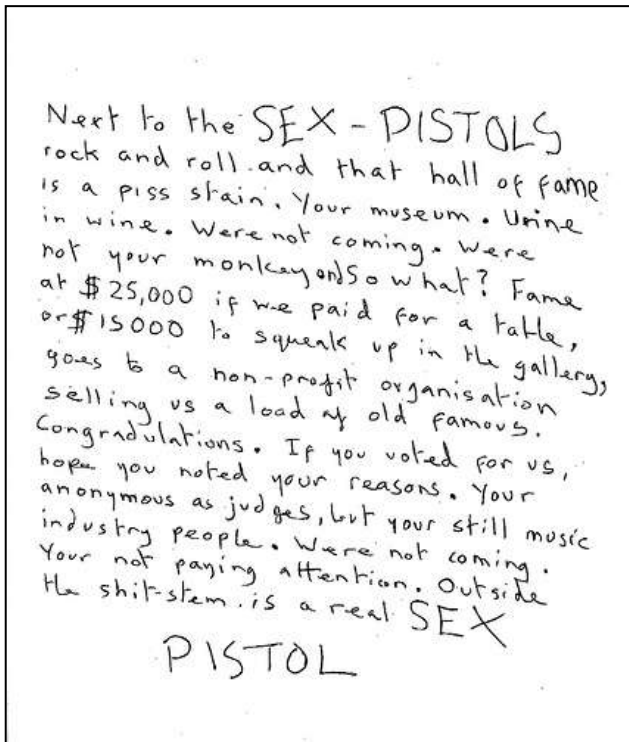 Next to the SEX-PISTOLS
rock and roll.and that hall of fame
is a piss stain. Your museum. Urine
in wine. Were not coming. Were
not your monkey and So what? Fame
at $25,000 if we paid for a table,
or $15000 to squeak up in the gallery,
goes to a non-profit organisation
selling us a load of old famous.
Congradulations. If you voted for us,
hope you noted your reasons. Your
anonymous as judges, but your still music
industry people. Were not coming.
Your not paying attention. Outside
the shit-stem. is a real SEX
PISTOL